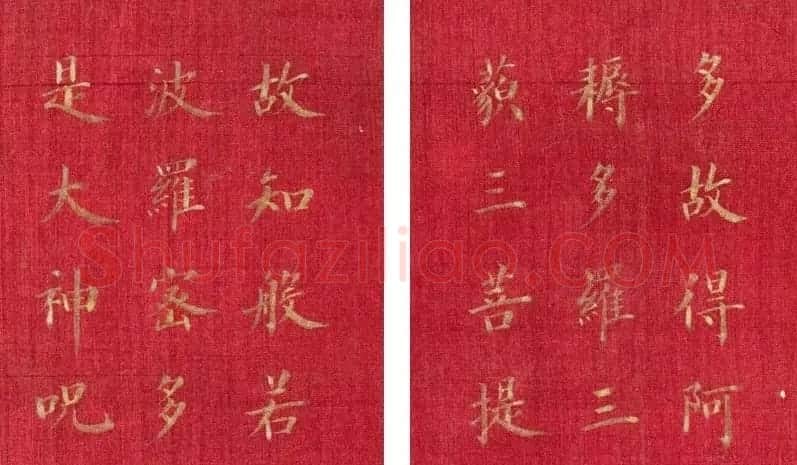 多故得阿
耨多羅三
藐三菩提
故知般若
波羅密多
是大神呪
Shufaziliao.COM